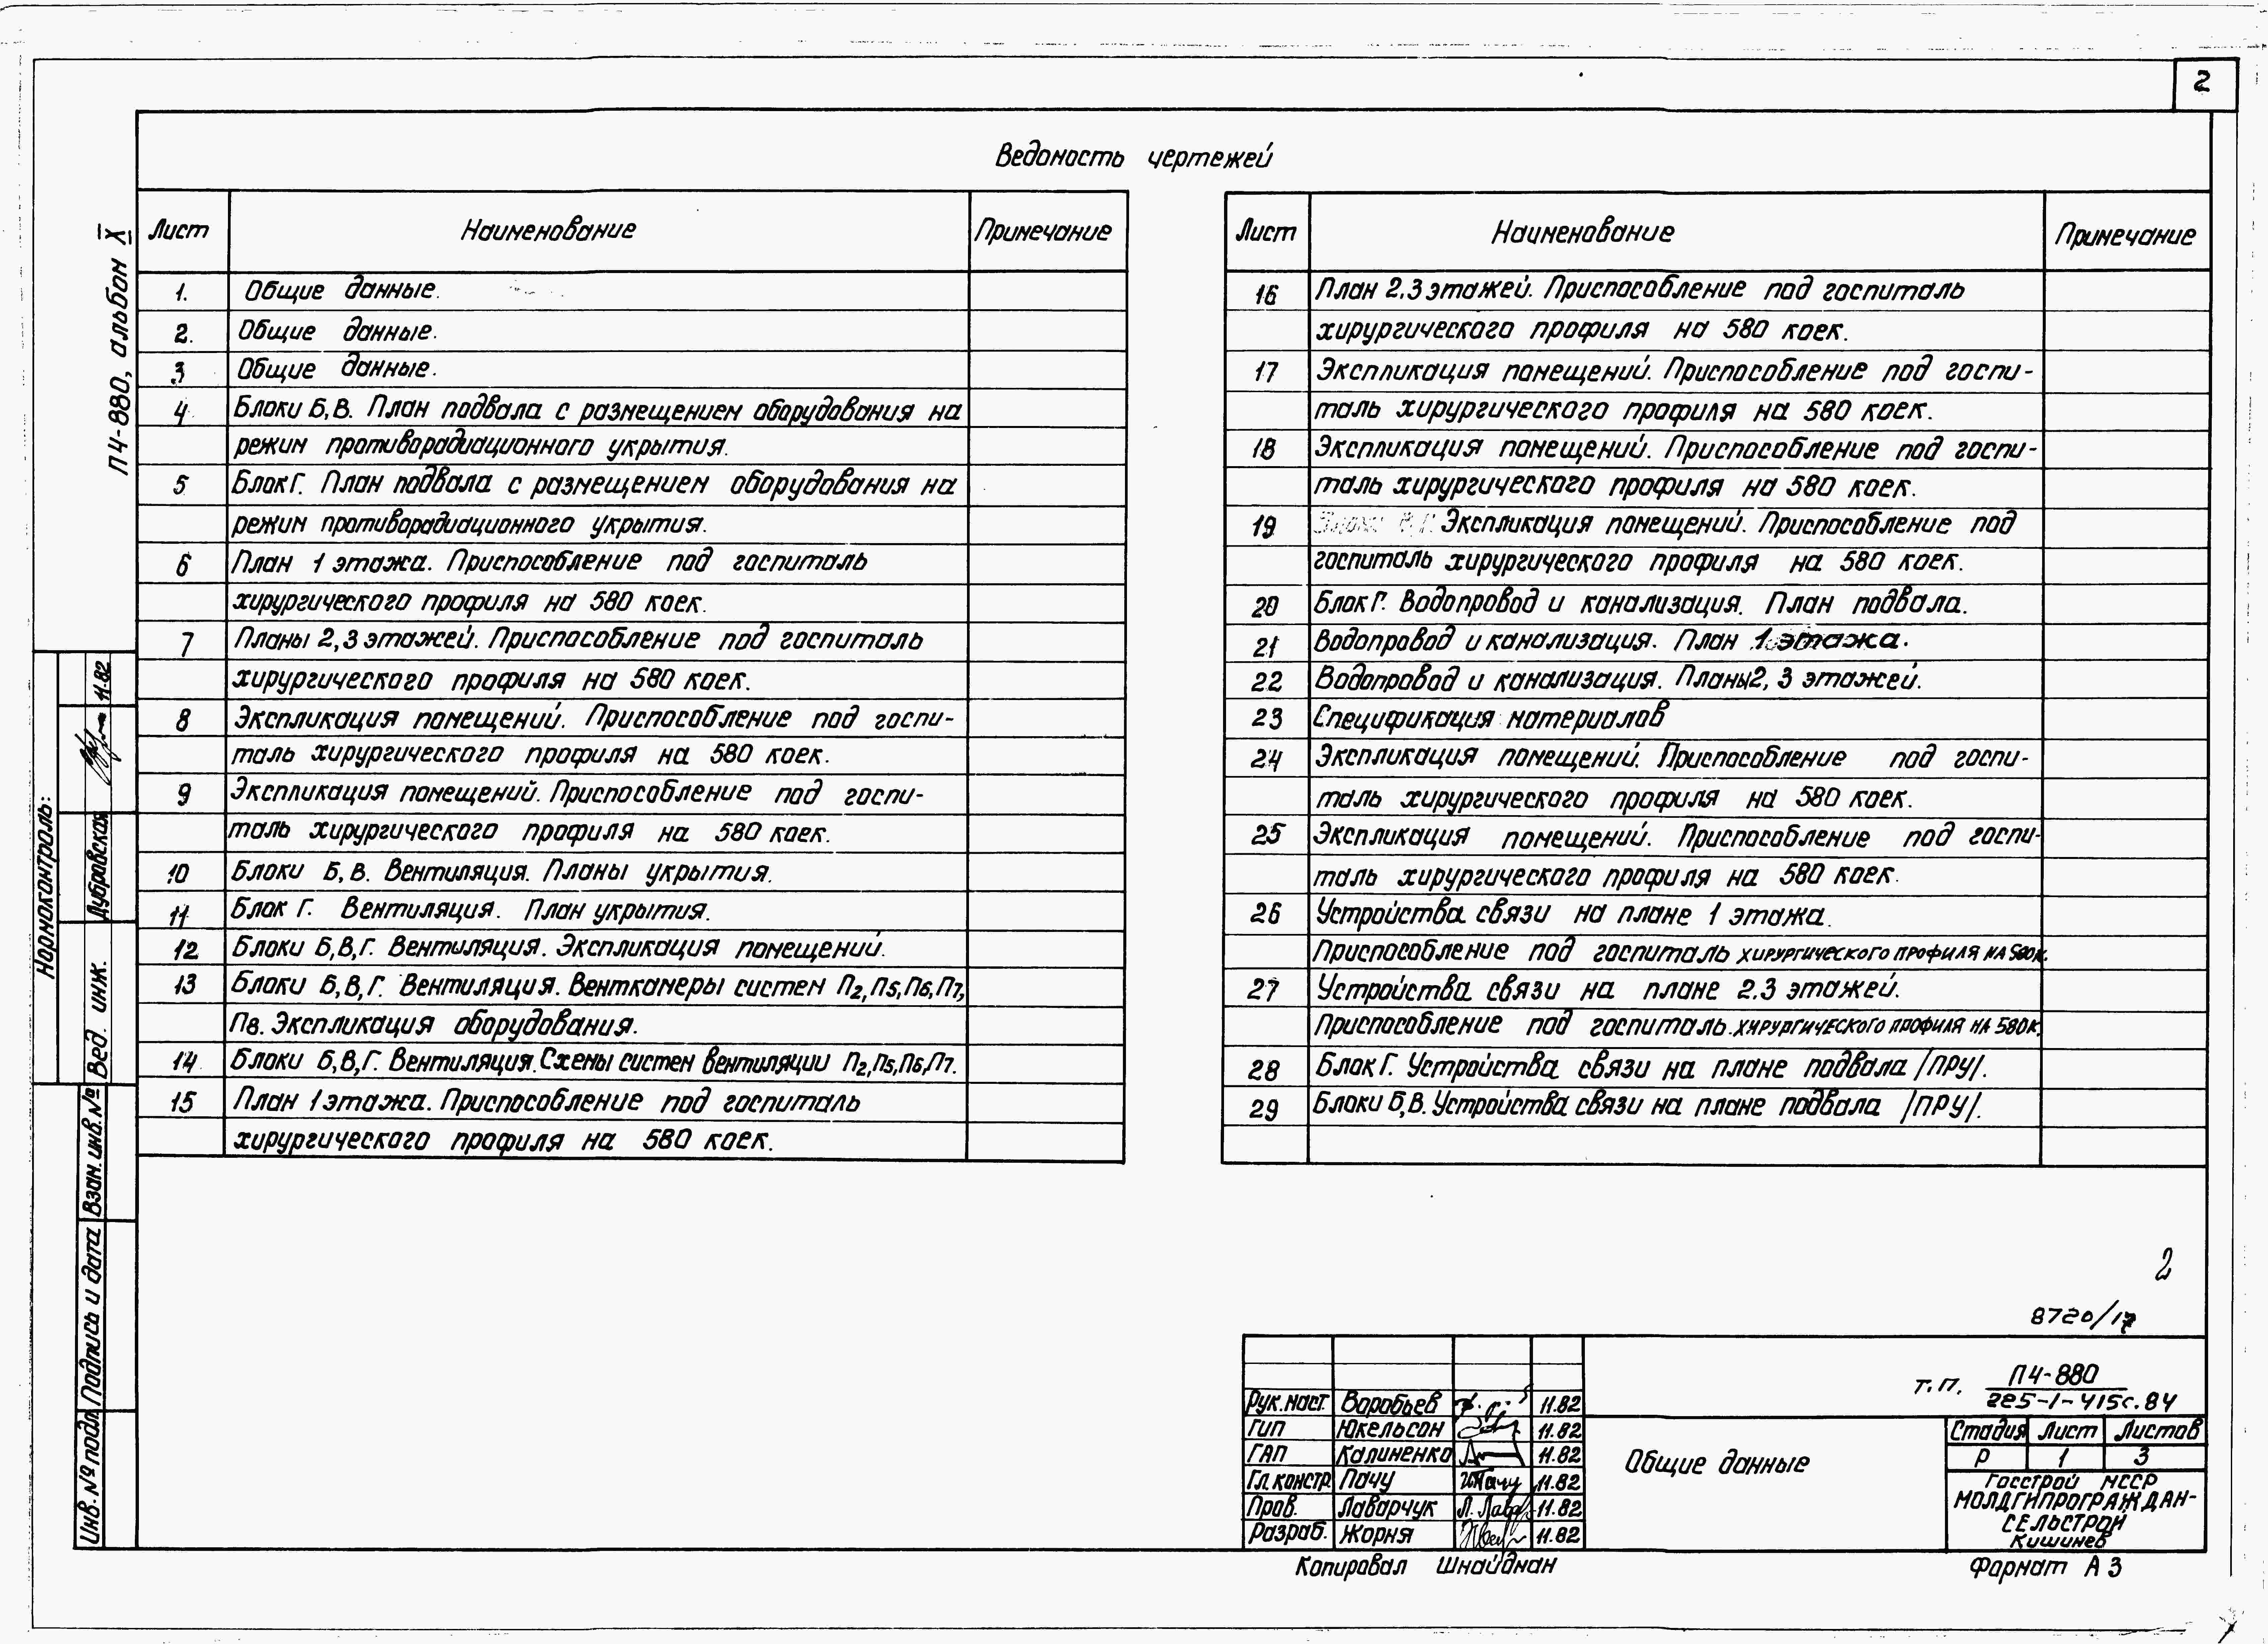 2
Ведомость чертежей
Лист Наименование Примечание
1. Общие данные.
2. Общие данные.
3 Общие данные.
4 Блоки Б,В. План подвала с размещением оборудования на
режим противорадиационного укрытия.
5 Блок Г. План подвала с размещением оборудования на
режим противорадиационного укрытия.
6 План 1 этажа. Приспособление под госпиталь
хирургического профиля на 580 коек.
7 Планы 2,3 этажей. Приспособление под госпиталь
хирургического профиля на 580 коек.
8 Экспликация помещений. Приспособление под госпи-
таль хирургического профиля на 580 коек.
9 Экспликация помещений. Приспособление под госпи-
таль хирургического профиля на 580 коек.
10 Блоки Б,В. Вентиляция. Планы укрытия.
11 Блок Г. Вентиляция. План укрытия.
12 Блоки Б,В,Г. Вентиляция. Экспликация помещений.
13 Блоки Б,В,Г. Вентиляция. Венткамеры систем П2,П5,П6,П7,
П8. Экспликация оборудования.
14 Блоки Б,В,Г. Вентиляция. Схемы систем вентиляции П2,П5,П6,П7.
15 План 1 этажа. Приспособление под госпиталь
хирургического профиля на 580 коек.
Лист Наименование Примечание
16 План 2,3 этажей. Приспособление под госпиталь
хирургического профиля на 580 коек.
17 Экспликация помещений. Приспособление под госпи-
таль хирургического профиля на 580 коек.
18 Экспликация помещений. Приспособление под госпи-
таль хирургического профиля на 580 коек.
19 Экспликация помещений. Приспособление под
госпиталь хирургического профиля на 580 коек.
20 Блок Г. Водопровод и канализация. План подвала.
21 Водопровод и канализация. План 1 этажа.
22 Водопровод и канализация. Планы 2, 3 этажей.
23 Спецификация материалов
24 Экспликация помещений. Приспособление под госпи-
таль хирургического профиля на 580 коек.
25 Экспликация помещений. Приспособление под госпи-
таль хирургического профиля на 580 коек.
26 Устройства связи на плане 1 этажа.
Приспособление под госпиталь хирургического профиля на 580к.
27 Устройства связи на плане 2.3 этажей.
Приспособление под госпиталь. хирургического профиля на 580к.
28 Блок Г. Устройства связи на плане подвала /ПРУ/.
29 Блоки Б,В. Устройства связи на плане подвала /ПРУ/.
П4-880, альбом X
Нормоконтроль:
Вед. инж. Дубравская 11.82
Взам. инв. №
Подпись и дата
Инв. № подл
2
8720/17
т.п. П4-880
225-1-415с.84
Рук. маст. Воробьев 11.82
ГИП Юкельсон 11.82
ГАП Калиненко 11.82
Гл. констр. Пачу 11.82
Пров. Лаварчук 11.82
Разраб. Жорня 11.82
Общие данные
Стадия Лист Листов
Р 1 3
Госстрой МССР
МОЛДГИПРОГРАЖДАН-
СЕЛЬСТРОЙ
Кишинев
Копировал Шнайдман
Формат А3